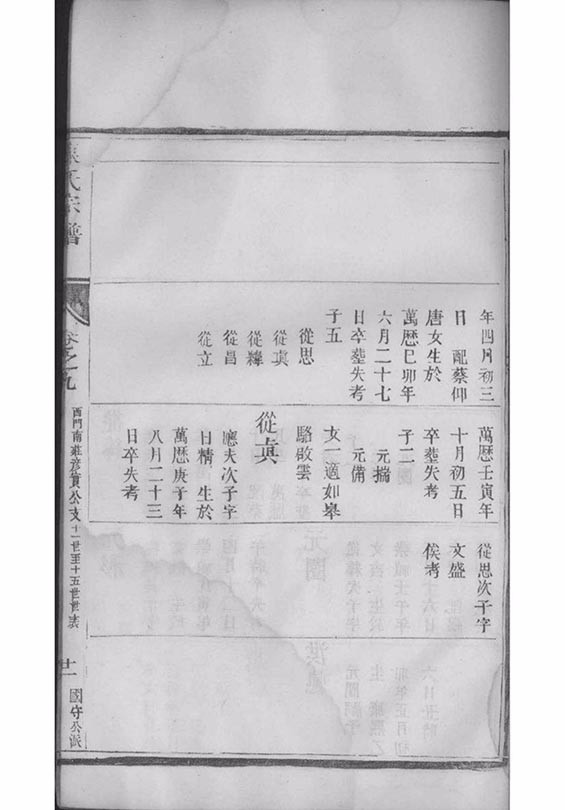 年四月初三
日　配蔡仰
唐女生於
萬歷巳卯年
六月二十七
日卒塟失考
子五
從思
從真
從緯
從昌
從立
萬歷壬寅年
十月初五日
卒塟失考
子二
元揣
元備
女一適如皋
駱啟雲
從真
應夫次子字
日精　生於
萬歷庚子年
八月二十三
日卒失考
從思次子字
文盛
俟考
氏宗譜
卷之九
西門南莊彥實公支十一世至十五世世表
國守公派